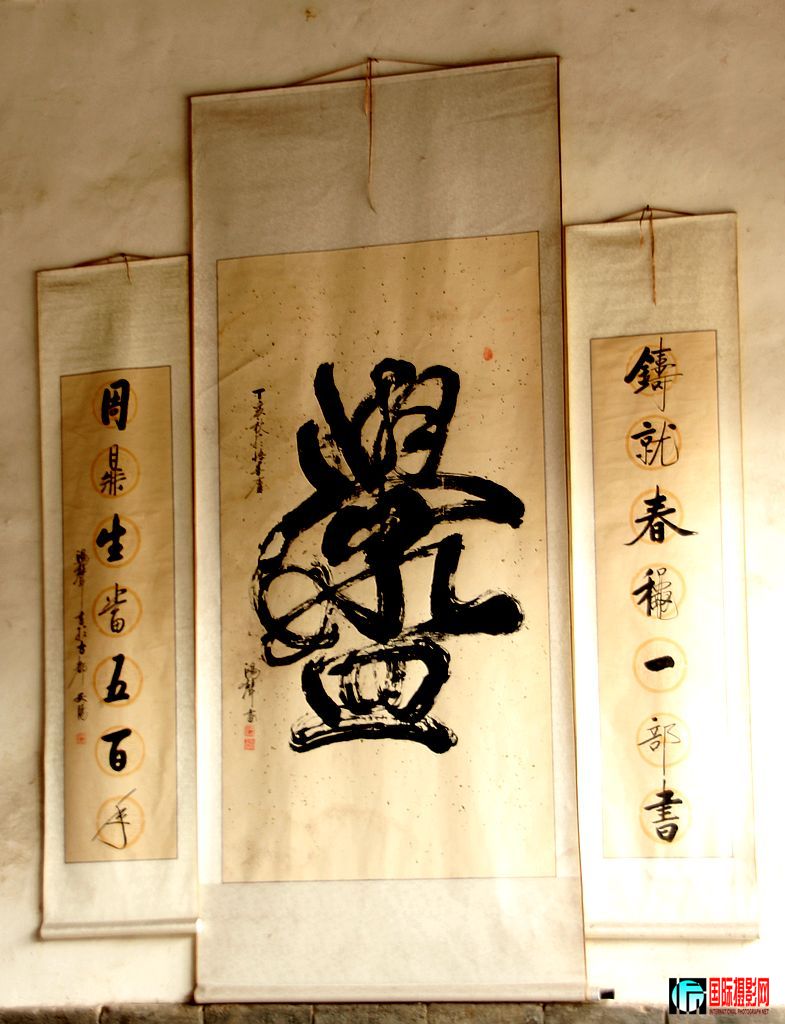 鑄就春龝一部書
丁亥秋於
周鼎生當五百年
書於古都
国际摄影网
INTERNATIONAL PHOTOGRAPH.NET